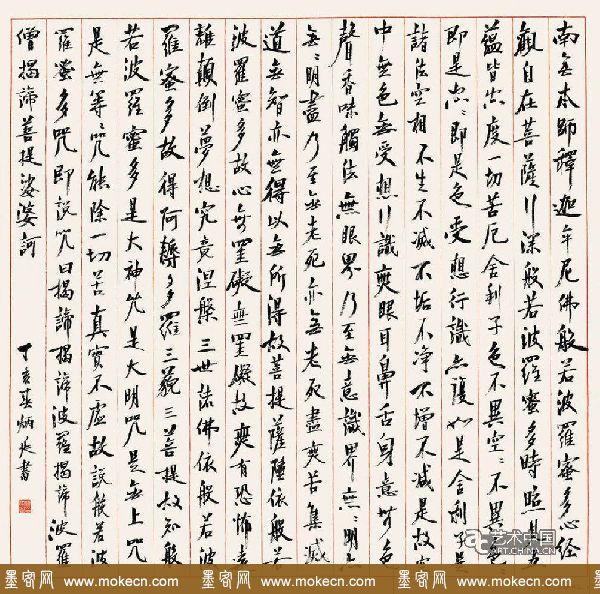 南無本師釋迦牟尼佛般若波羅蜜多心经
觀自在菩薩行深般若波羅蜜多時照見五
蘊皆空度一切苦厄舍利子色不異空々不異色
即是空々即是色受想行識亦復如是舍利子是
諸法空相不生不滅不垢不净不增不減是故空
中無色無受想行識無眼耳鼻舌身意無色
聲香味觸法無眼界乃至無意識界無々明亦
無々明盡乃至無老死亦無老死盡無苦集滅
道無智亦無得以無所得故菩提薩埵依般若
波羅蜜多故心無罣礙無罣礙故無有恐怖遠
離顛倒夢想究竟涅槃三世諸佛依般若波
羅蜜多故得阿耨多羅三藐三菩提故知般
若波羅蜜多是大神咒是大明咒是無上咒
是無等々咒能除一切苦真實不虛故說般若波
羅蜜多咒即說咒曰揭諦揭諦波羅揭諦波羅
僧揭諦菩提娑婆訶
丁亥 炳 書
艺术中国
ART.CHINA.CN
墨客网 www.mokecn.com 墨客网 www.mokecn.com 墨客网 www.mokecn.com